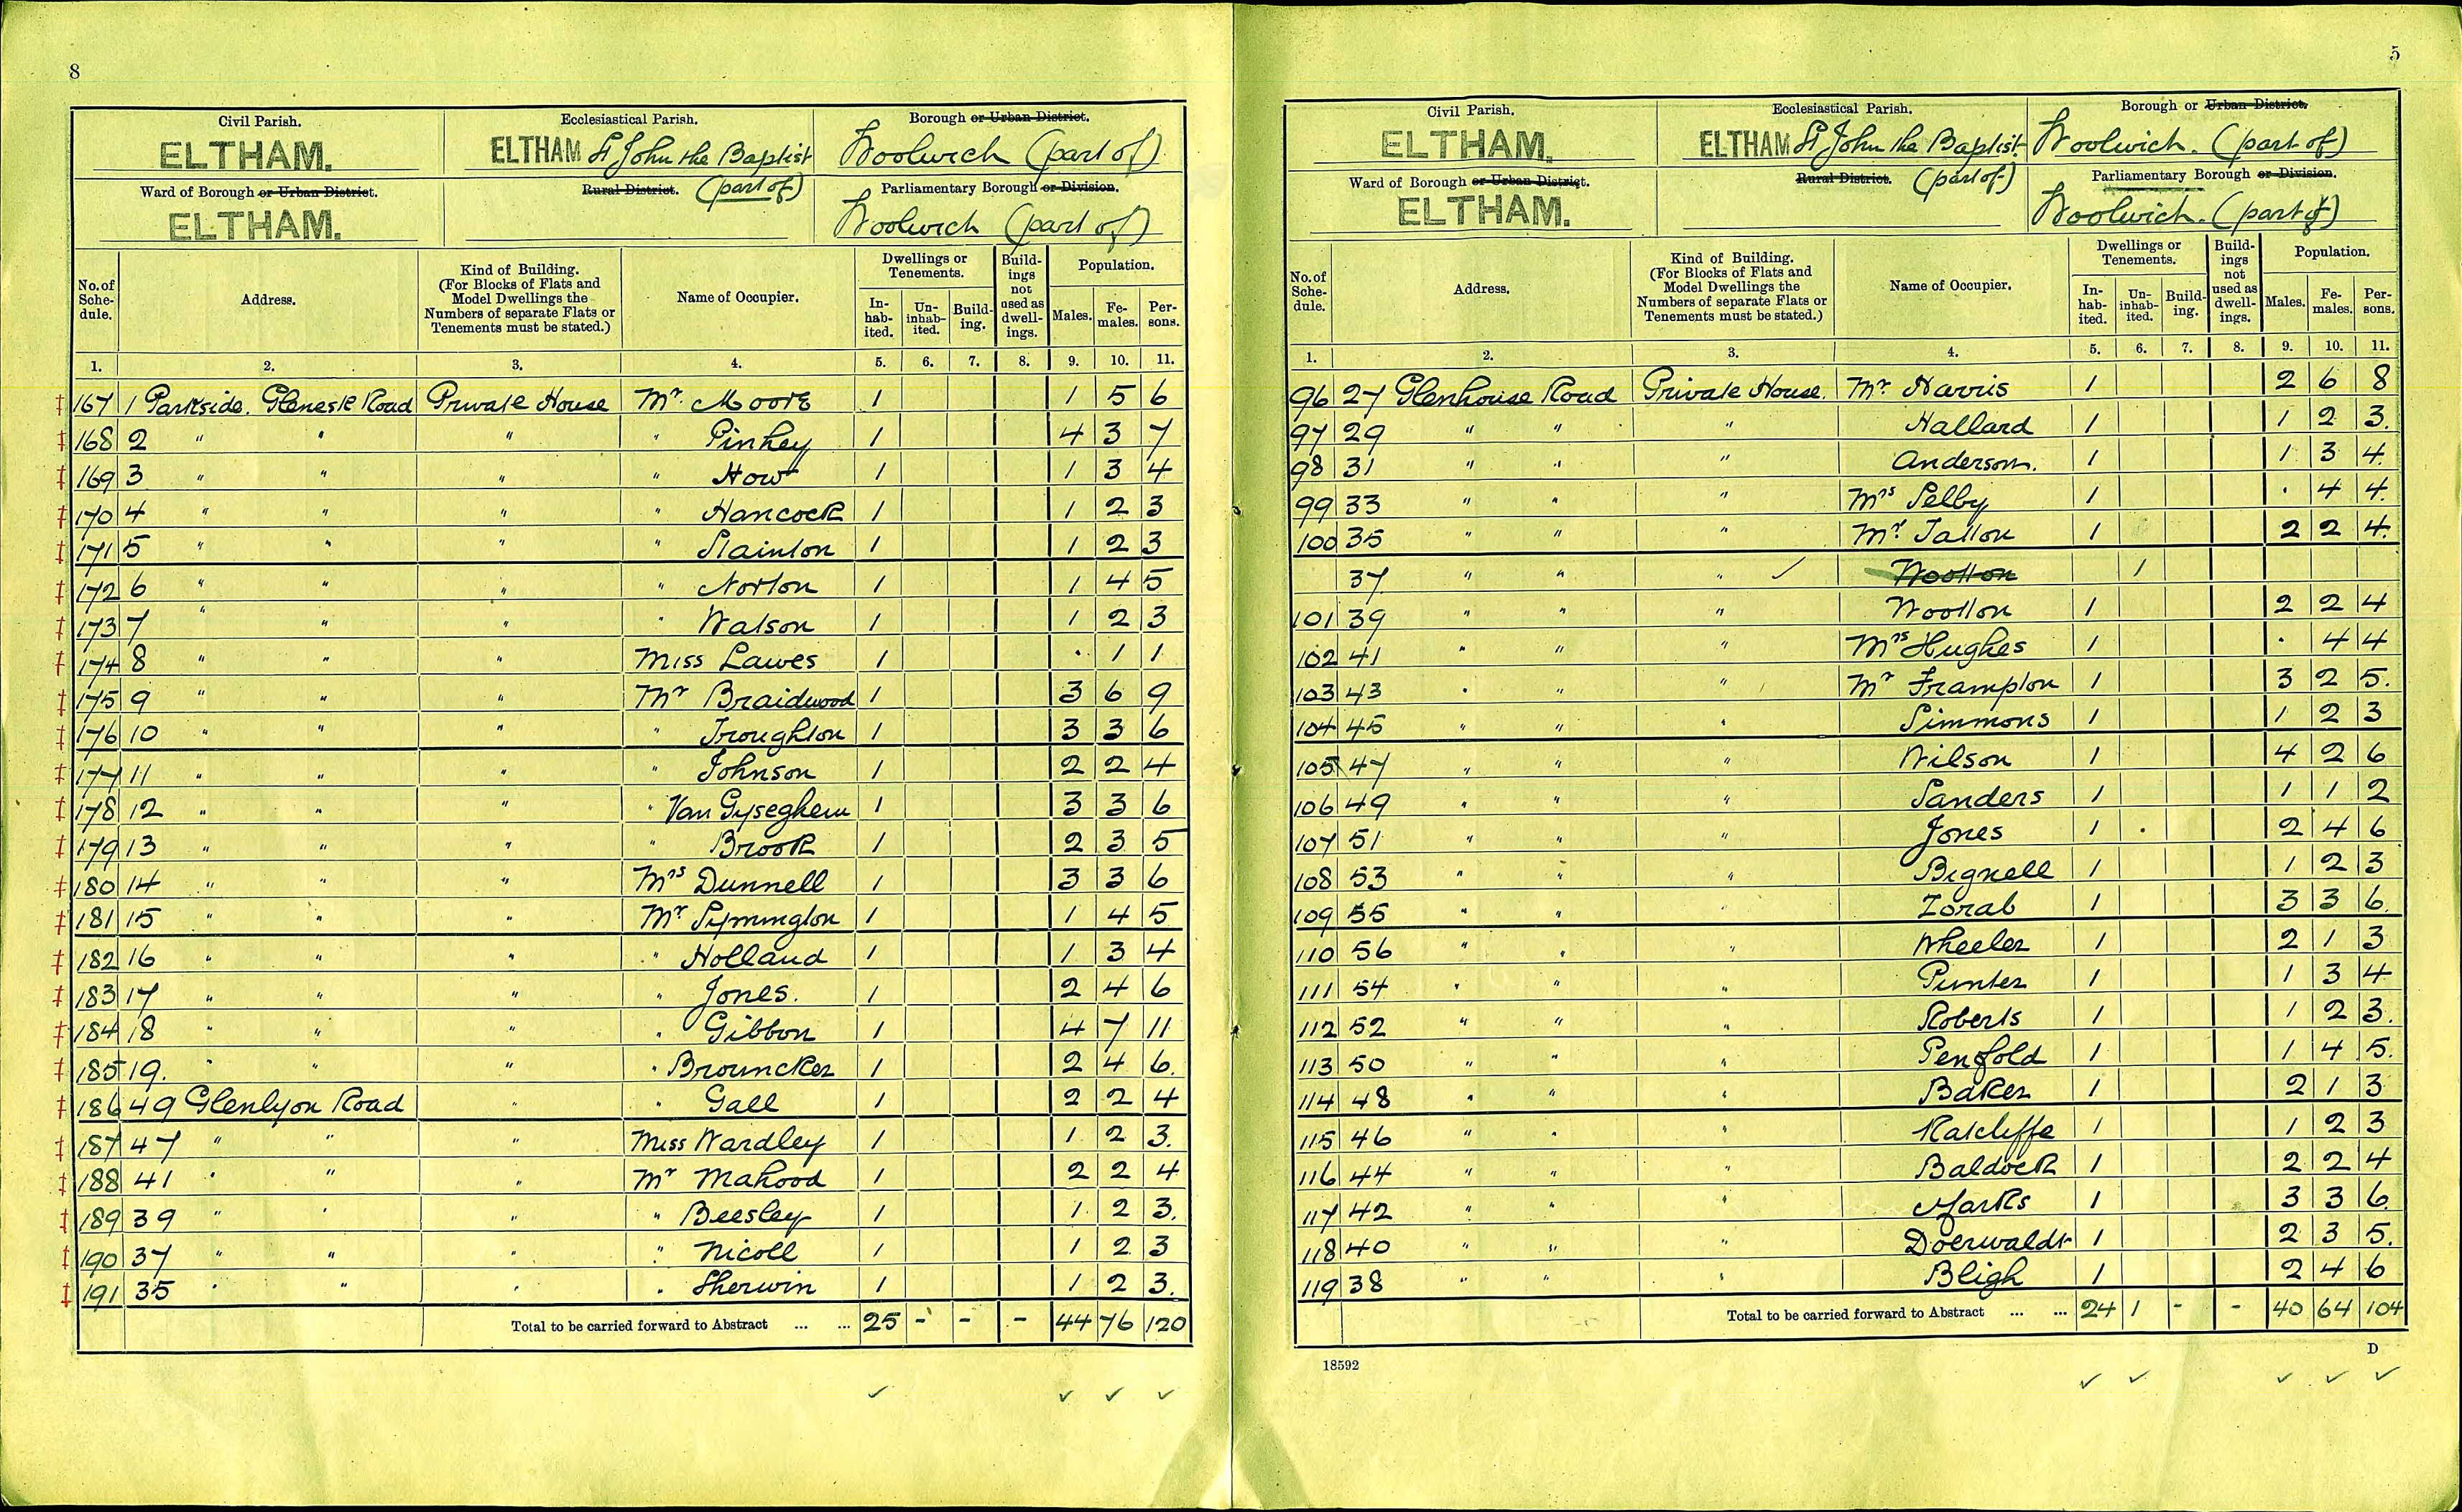 8
Civil Parish.
ELTHAM.
Ecclesiastical Parish.
ELTHAM St John the Baptist
Borough or Urban District.
Woolwich (part of)
Ward of Borough or Urban District.
ELTHAM.
Rural District. (part of)
Parliamentary Borough or Division.
Woolwich (part of)
No. of Schedule.
Address.
Kind of Building.
(For Blocks of Flats and
Model Dwellings the
Numbers of separate Flats or
Tenements must be stated.)
Name of Occupier.
Dwellings or
Tenements.
In-
hab-
ited.
Un-
inhab-
ited.
Build-
ing.
Build-
ings
not
used as
dwell-
ings.
Population.
Males.
Fe-
males.
Per-
sons.
1. 2. 3. 4. 5. 6. 7. 8. 9. 10. 11.
‡ 167 1 Parkside. Glenesk Road Private House Mr. Moore 1 1 5 6
‡ 168 2 " " " " Pinhey 1 4 3 7
‡ 169 3 " " " " How 1 1 3 4
‡ 170 4 " " " " Hancock 1 1 2 3
‡ 171 5 " " " " Stainton 1 1 2 3
‡ 172 6 " " " " Norton 1 1 4 5
‡ 173 7 " " " " Watson 1 1 2 3
‡ 174 8 " " " Miss Lawes 1 . 1 1
‡ 175 9 " " " Mr Braidwood 1 3 6 9
‡ 176 10 " " " " Troughton 1 3 3 6
‡ 177 11 " " " " Johnson 1 2 2 4
‡ 178 12 " " " " Van Gyseghem 1 3 3 6
‡ 179 13 " " " " Brook 1 2 3 5
‡ 180 14 " " " Mrs Dunnell 1 3 3 6
‡ 181 15 " " " Mr Symington 1 1 4 5
‡ 182 16 " " " " Holland 1 1 3 4
‡ 183 17 " " " " Jones. 1 2 4 6
‡ 184 18 " " " " Gibbon 1 4 7 11
‡ 185 19. " " " " Brouncker 1 2 4 6.
‡ 186 49 Glenlyon Road " " Gall 1 2 2 4
‡ 187 47 " " " Miss Wardley 1 1 2 3.
‡ 188 41 " " " Mr Mahood 1 2 2 4
‡ 189 39 " " " " Beesley 1 1 2 3.
‡ 190 37 " " " " Nicoll 1 1 2 3
‡ 191 35 " " " " Sherwin 1 1 2 3.
Total to be carried forward to Abstract ... ... 25 - - - 44 76 120
5
Civil Parish.
ELTHAM.
Ecclesiastical Parish.
ELTHAM St John the Baptist
Borough or Urban District.
Woolwich. (part of)
Ward of Borough or Urban District.
ELTHAM.
Rural District. (part of)
Parliamentary Borough or Division.
Woolwich. (part of)
No. of Schedule.
Address.
Kind of Building.
(For Blocks of Flats and
Model Dwellings the
Numbers of separate Flats or
Tenements must be stated.)
Name of Occupier.
Dwellings or
Tenements.
In-
hab-
ited.
Un-
inhab-
ited.
Build-
ing.
Build-
ings
not
used as
dwell-
ings.
Population.
Males.
Fe-
males.
Per-
sons.
1. 2. 3. 4. 5. 6. 7. 8. 9. 10. 11.
96 27 Glenhouse Road Private House. Mr Harris 1 2 6 8
97 29 " " " Hallard 1 1 2 3.
98 31 " " " Anderson. 1 1 3 4.
99 33 " " " Mrs Selby 1 . 4 4.
100 35 " " " Mr. Tallon 1 2 2 4.
37 " " " ✓ Wootton 1
101 39 " " " Wootton 1 2 2 4
102 41 " " " Mrs Hughes 1 . 4 4
103 43 " " " Mr Frampton 1 3 2 5.
104 45 " " " Simmons 1 1 2 3
105 47 " " " Wilson 1 4 2 6
106 49 " " " Sanders 1 1 1 2
107 51 " " " Jones 1 . 2 4 6
108 53 " " " Bignell 1 1 2 3
109 55 " " " Zorab 1 3 3 6.
110 56 " " " Wheeler 1 2 1 3
111 54 " " " Punter 1 1 3 4
112 52 " " " Roberts 1 1 2 3.
113 50 " " " Penfold 1 1 4 5.
114 48 " " " Baker 1 2 1 3
115 46 " " " Ratcliffe 1 1 2 3
116 44 " " " Baldock 1 2 2 4
117 42 " " " Marks 1 3 3 6.
118 40 " " " Doerwaldt 1 2 3 5.
119 38 " " " Bligh 1 2 4 6
Total to be carried forward to Abstract ... ... 24 1 - - 40 64 104
18592
D